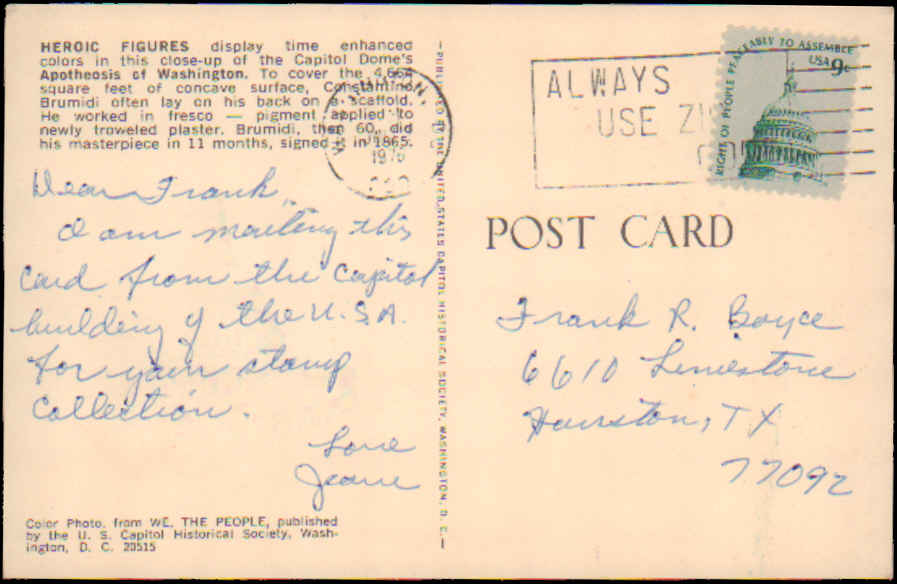 HEROIC FIGURES display time enhanced
colors in this close-up of the Capitol Dome's
Apotheosis of Washington. To cover the 4,664
square feet of concave surface, Constantino
Brumidi often lay on his back on a scaffold.
He worked in fresco — pigment applied to
newly troweled plaster. Brumidi, then 60, did
his masterpiece in 11 months, signed it in 1865.
Dear Frank,
I am mailing this
card from the Capitol
building of the U.S.A.
for your stamp
collection.
Love
Jeane
Color Photo. from WE, THE PEOPLE, published
by the U. S. Capitol Historical Society, Wash-
ington, D. C. 20515
—PUBLISHED BY THE UNITED STATES CAPITOL HISTORICAL SOCIETY, WASHINGTON, D. C.—
ALWAYS
USE ZIP
RIGHT OF PEOPLE PEACEABLY TO ASSEMBLE
USA 9c
POST CARD
Frank R. Boyce
6610 Limestone
Houston, TX
77092